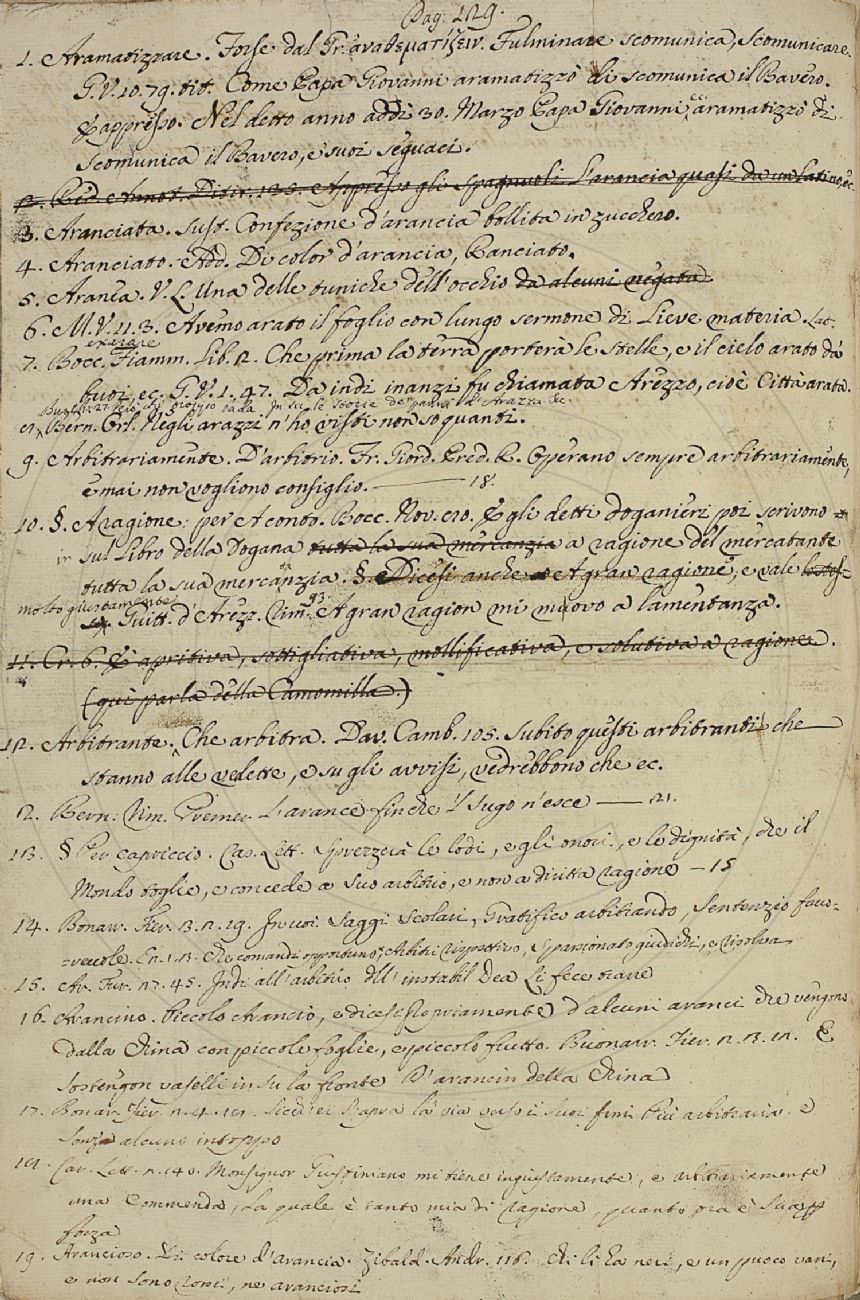 Pag: 129.
1. Aramatizzare. Forse dal Gr. ἀναθεματίζειν. Fulminare scomunica, Scomunicare.
G.V. 10. 79. tit. Come Papa Giovanni aramatizzò di scomunica il Bavero.
E appresso. Nel detto anno addì 30. Marzo Papa Giovanni aramatizzò di
scomunica il Bavero, e suoi seguaci.
Appresso gli Spagnuoli L'arancia quasi da un latino, ec.
3. Aranciata. Sust. Confezione d'arancia bollita in zucchero.
4. Aranciato. Add. Di color d'arancia, Ranciato.
5. Aranea. V.L. Una delle tuniche dell'occhio da alcuni negata.
6. M.V. 11. 3. Avemo arato il foglio con lungo sermone di Lieve materia. Lat.
exarare
7. Bocc. Fiamm. Lib. 2. Che prima la terra porterà le stelle, e il cielo arato da
buoi, ec. G.V. 1. 47. Da indi inanzi fu chiamata Arezzo, cioè Città arata.
in su le storie de' panni d'Arazza ec.
8. Bern. Orl. Negli arazzi n'ho visti non so quanti.
9. Arbitrariamente. D'arbitrio. Fr. Giord. Pred. R. Operano sempre arbitrariamente,
e mai non vogliono consiglio. — 18.
10. §. A ragione: per A conto. Bocc. Nov. 80. E gli detti doganieri poi scrivono
in sul Libro della Dogana tutta la sua mercanzia a ragione del mercatante
tutta la sua mercanzia. §. Dicesi anche A gran ragione, e vale
molto giustamente
Guitt. d'Arezz. Rim. A gran ragion mi muovo a lamentanza.
11. Cr. 6. E apritiva, sottigliativa, mollificativa, e solutiva a ragione.
(qui parla della Camomilla.)
12. Arbitrante. Che arbitra. Dav. Camb. 105. Subito questi arbitranti che
stanno alle vedette, e su gli avvisi, vedrebbono che ec.
12. Bern. Rim. Premer L'arance finche 'l sugo n'esce — 21.
13. § Per capriccio. Cas. Lett. Sprezzerà le lodi, e gli onori, e le dignità, che il
Mondo toglie, e concede a suo arbitrio, e non a diritta ragione — 15
14. Bonarr. Fier. 3. 2. 19. In voi Saggi Scolari, Gratifico arbitrando, Sentenzio favo-
revole. Arbitri rispettivo, Spassionato giudichi, e risolva
15. Ar. Fur. 27. 45. Indi all'arbitrio dell'instabil Dea Li fece trarre
16. Arancino. Piccolo Arancio, e dicesi propriamente d'alcuni aranci che vengono
dalla China con piccole foglie, e piccolo frutto. Buonarr. Fier. 2. 3. 12. E
sostengon vaselli in su la fronte D'arancin della China
17. Bonar. Fier. 2. 4. 18. la via verso i suoi fini Più arbitraria, e
senza alcuno intoppo
18. Car. Lett. 2. 140. Monsignor Giustiniano mi tiene ingiustamente, e arbitrariamente
una Commenda, La quale è tanto mia di ragione, quanto ora è sua p
forza
19. Arancioso. Di colore d'arancia. Zibald. Andr. 116. Chi li ha neri, e un puoco vani,
e non sono rossi, ne aranciosi